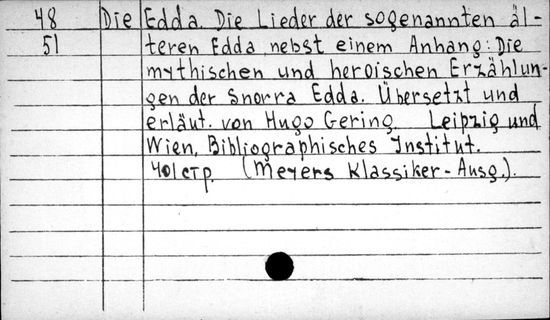 48 Die Edda. Die Lieder der sogenannten äl-
51 teren Edda nebst einem Anhang: Die
mythischen und heroischen Erzählun-
gen der Snorra Edda. Übersetzt und
erläut. von Hugo Gering. Leipzig und
Wien, Bibliographisches Institut.
401 стр. (Meyers Klassiker-Ausg.).